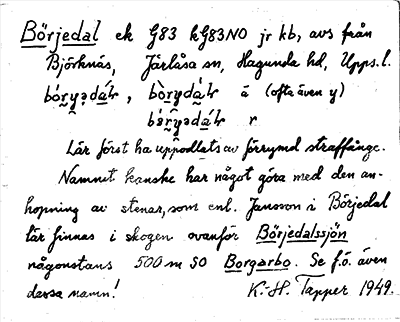 Börjedal ek G83 kG83NO jr kb, avs från
Björknäs, Järlåsa sn, Hagunda hd, Upps. l.
á (ofta även y)
r
Lär först ha uppodlats av förrymd straffånge.
Namnet kanske har något göra med den an-
hopning av stenar, som enl. Jansson i Börjedal
lär finnas i skogen ovanför Börjedalssjön
någonstans 500 m SO Borgarbo. Se f.ö. även
dessa namn! K.-H. Tapper 1949.